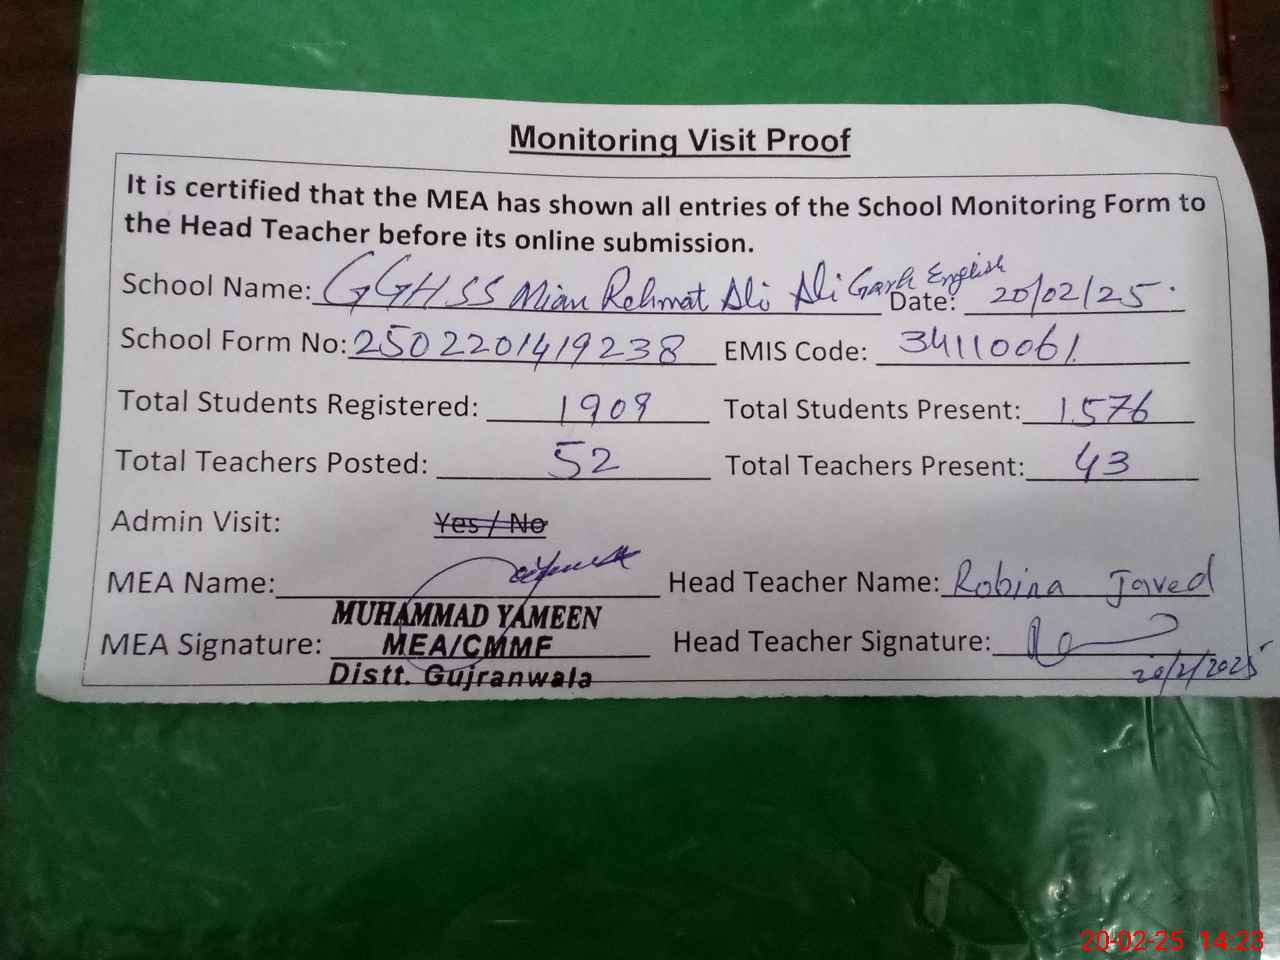 Monitoring Visit Proof
It is certified that the MEA has shown all entries of the School Monitoring Form to
the Head Teacher before its online submission.
School Name: GGHSS Mian Rehmat Ali Ali Garh English Date: 20/02/25
School Form No: 2502201419238 EMIS Code: 34110061
Total Students Registered: 1909 Total Students Present: 1576
Total Teachers Posted: 52 Total Teachers Present: 43
Admin Visit: Yes / No
MEA Name: Head Teacher Name: Robina Javed
MUHAMMAD YAMEEN
MEA Signature: MEA/CMMF Head Teacher Signature:
Distt. Gujranwala 20/2/2025
20-02-25 14:23